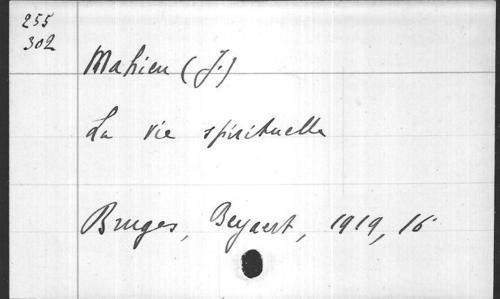 255
302
Mahieu (J.)
La vie spirituelle
Bruges, Beyaert, 1919, 16°